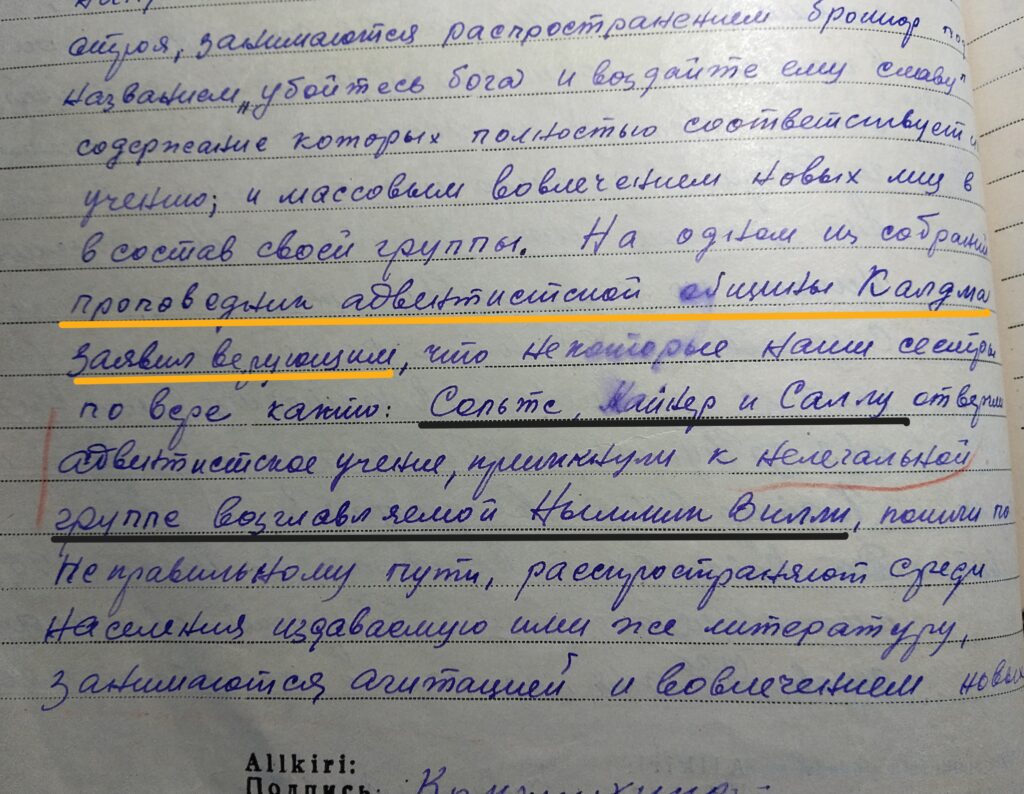 строя, занимаются распространением брошюр под
названием „убойтесь бога и воздайте ему славу"
содержание которых полностью соответствует и
учению; и массовым вовлечением новых лиц в
в состав своей группы. На одном из собраний
проповедник адвентистской общины Калдма
заявил верующим, что некоторые наши сестры
по вере как-то: Сольтс, Найнер и Саллу отвергли
адвентистское учение, примкнули к нелегальной
группе возглавляемой Ныммик Вилли, пошли по
неправильному пути, распространяют среди
населения издаваемую ими же литературу,
занимаются агитацией и вовлечением новых
Allkiri:
Подпись: